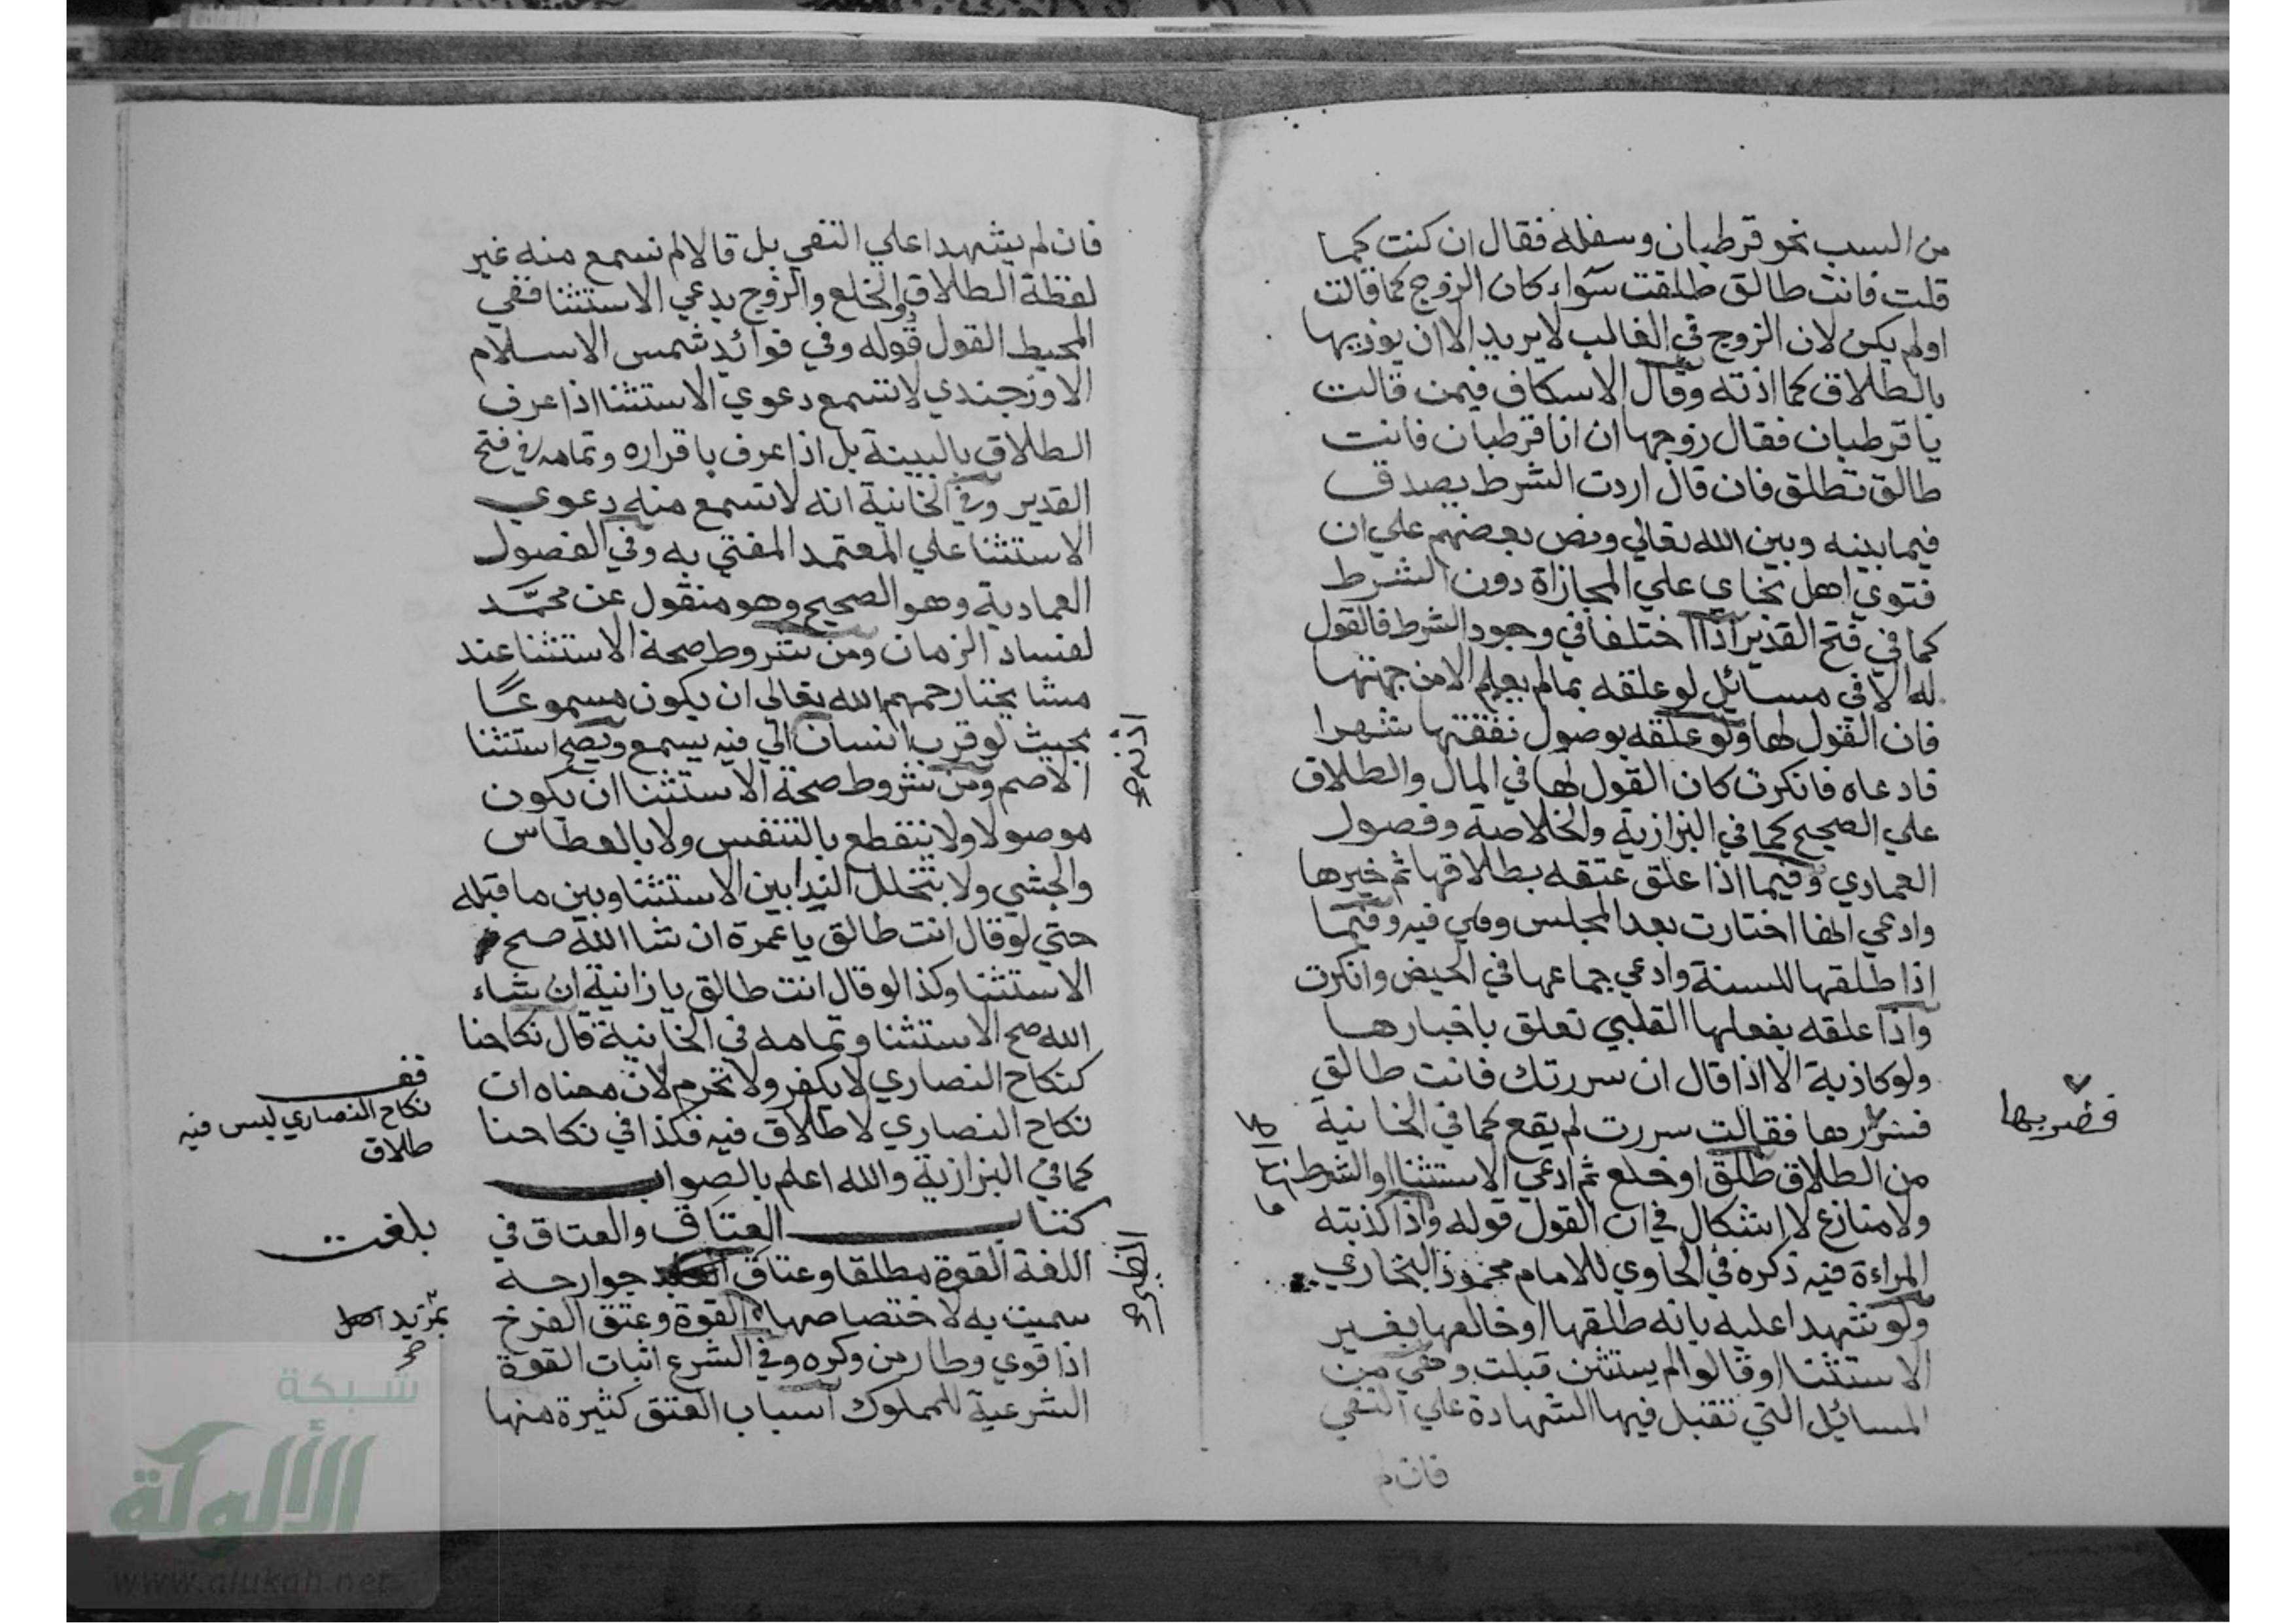 من السب نحو قرطبان وسفله فقال ان كنت كما
قلت فانت طالق طلقت سواء كان الزوج كما قالت
اولم يكن لان الزوج في الغالب لا يريد الا ان يوذيها
بالطلاق كما اذته وقال الاسكاف فيمن قالت
يا قرطبان فقال زوجها ان انا قرطبان فانت
طالق تطلق فان قال اردت الشرط يصدق
فيما بينه وبين الله تعالي ونص بعضهم علي ان
فتوي اهل بخاري علي المجازاة دون الشرط
كما في فتح القدير اذا اختلفا في وجود الشرط فالقول
له الا في مسائل لو علقه بما لم يعلم الا من جهتها
فان القول لها ولو علقه بوصول نفقتها شهرا
فادعاه فانكرت كان القول لها في المال والطلاق
علي الصحيح كما في البزازية والخلاصة وفصول
العمادي وفيما اذا علق عتقه بطلاقها ثم خيرها
وادعي انها اختارت بعد المجلس وهي فيه وفيما
اذا طلقها للسنة وادعي جماعها في الحيض وانكرت
واذا علقه بفعلها القلبي تعلق باخبارها
ولو كاذبة الا اذا قال ان سررتك فانت طالق
فضربها
فقالت سررت لم يقع كما في الخانية
من الطلاق طلق او خلع ثم ادعي الاستثنا او الشرط
ولا منازع لا اشكال في ان القول قوله واذا كذبته
المراءة فيه ذكره في الحاوي للامام محمود البخاري
ولو شهدا عليه بانه طلقها او خالعها بغير
الاستثنا او قالوا لم يستثن قبلت وهي من
المسائل التي تقبل فيها الشهادة علي النفي
فان لم
فان لم يشهدا علي النفي بل قالا لم نسمع منه غير
لفظة الطلاق والخلع والزوج يدعي الاستثنا ففي
المحيط القول قوله وفي فوائد شمس الاسلام
الاوزجندي لا تسمع دعوي الاستثنا اذا عرف
الطلاق بالبينة بل اذا عرف باقراره وتمامه في فتح
القدير وفي الخانية انه لا تسمع منه دعوي
الاستثنا علي المعتمد المفتي به وفي الفصول
العمادية وهو الصحيح وهو منقول عن محمد
لفساد الزمان ومن شروط صحة الاستثنا عند
مشايخنا رحمهم الله تعالي ان يكون مسموعا
بحيث لو قرب انسان الي فيه يسمع ويصح استثنا
الاصم ومن شروط صحة الاستثنا ان يكون
موصولا ولا ينقطع بالتنفس ولا بالعطاس
والجشي ولا بتخلل الندا بين الاستثنا وبين ما قبله
حتي لو قال انت طالق يا عمرة ان شا الله صح
الاستثنا وكذا لو قال انت طالق يا زانية ان شاء
الله صح الاستثنا وتمامه في الخانية قال نكاحنا
كنكاح النصاري لا يكفر ولا تحرم لان معناه ان
نكاح النصاري لا طلاق فيه فكذا في نكاحنا
كما في البزازية والله اعلم بالصواب
كتاب العتاق والعتاق في
اللغة القوة مطلقا وعتاق جوارحه
سميت به لاختصاصها القوة وعتق الفرخ
اذا قوي وطار من وكره وفي الشرع اثبات القوة
الشرعية للمملوك اسباب العتق كثيرة منها
قف
نكاح النصاري ليس فيه
طلاق
بلغت
شبكة
الألوكة
www.alukah.net